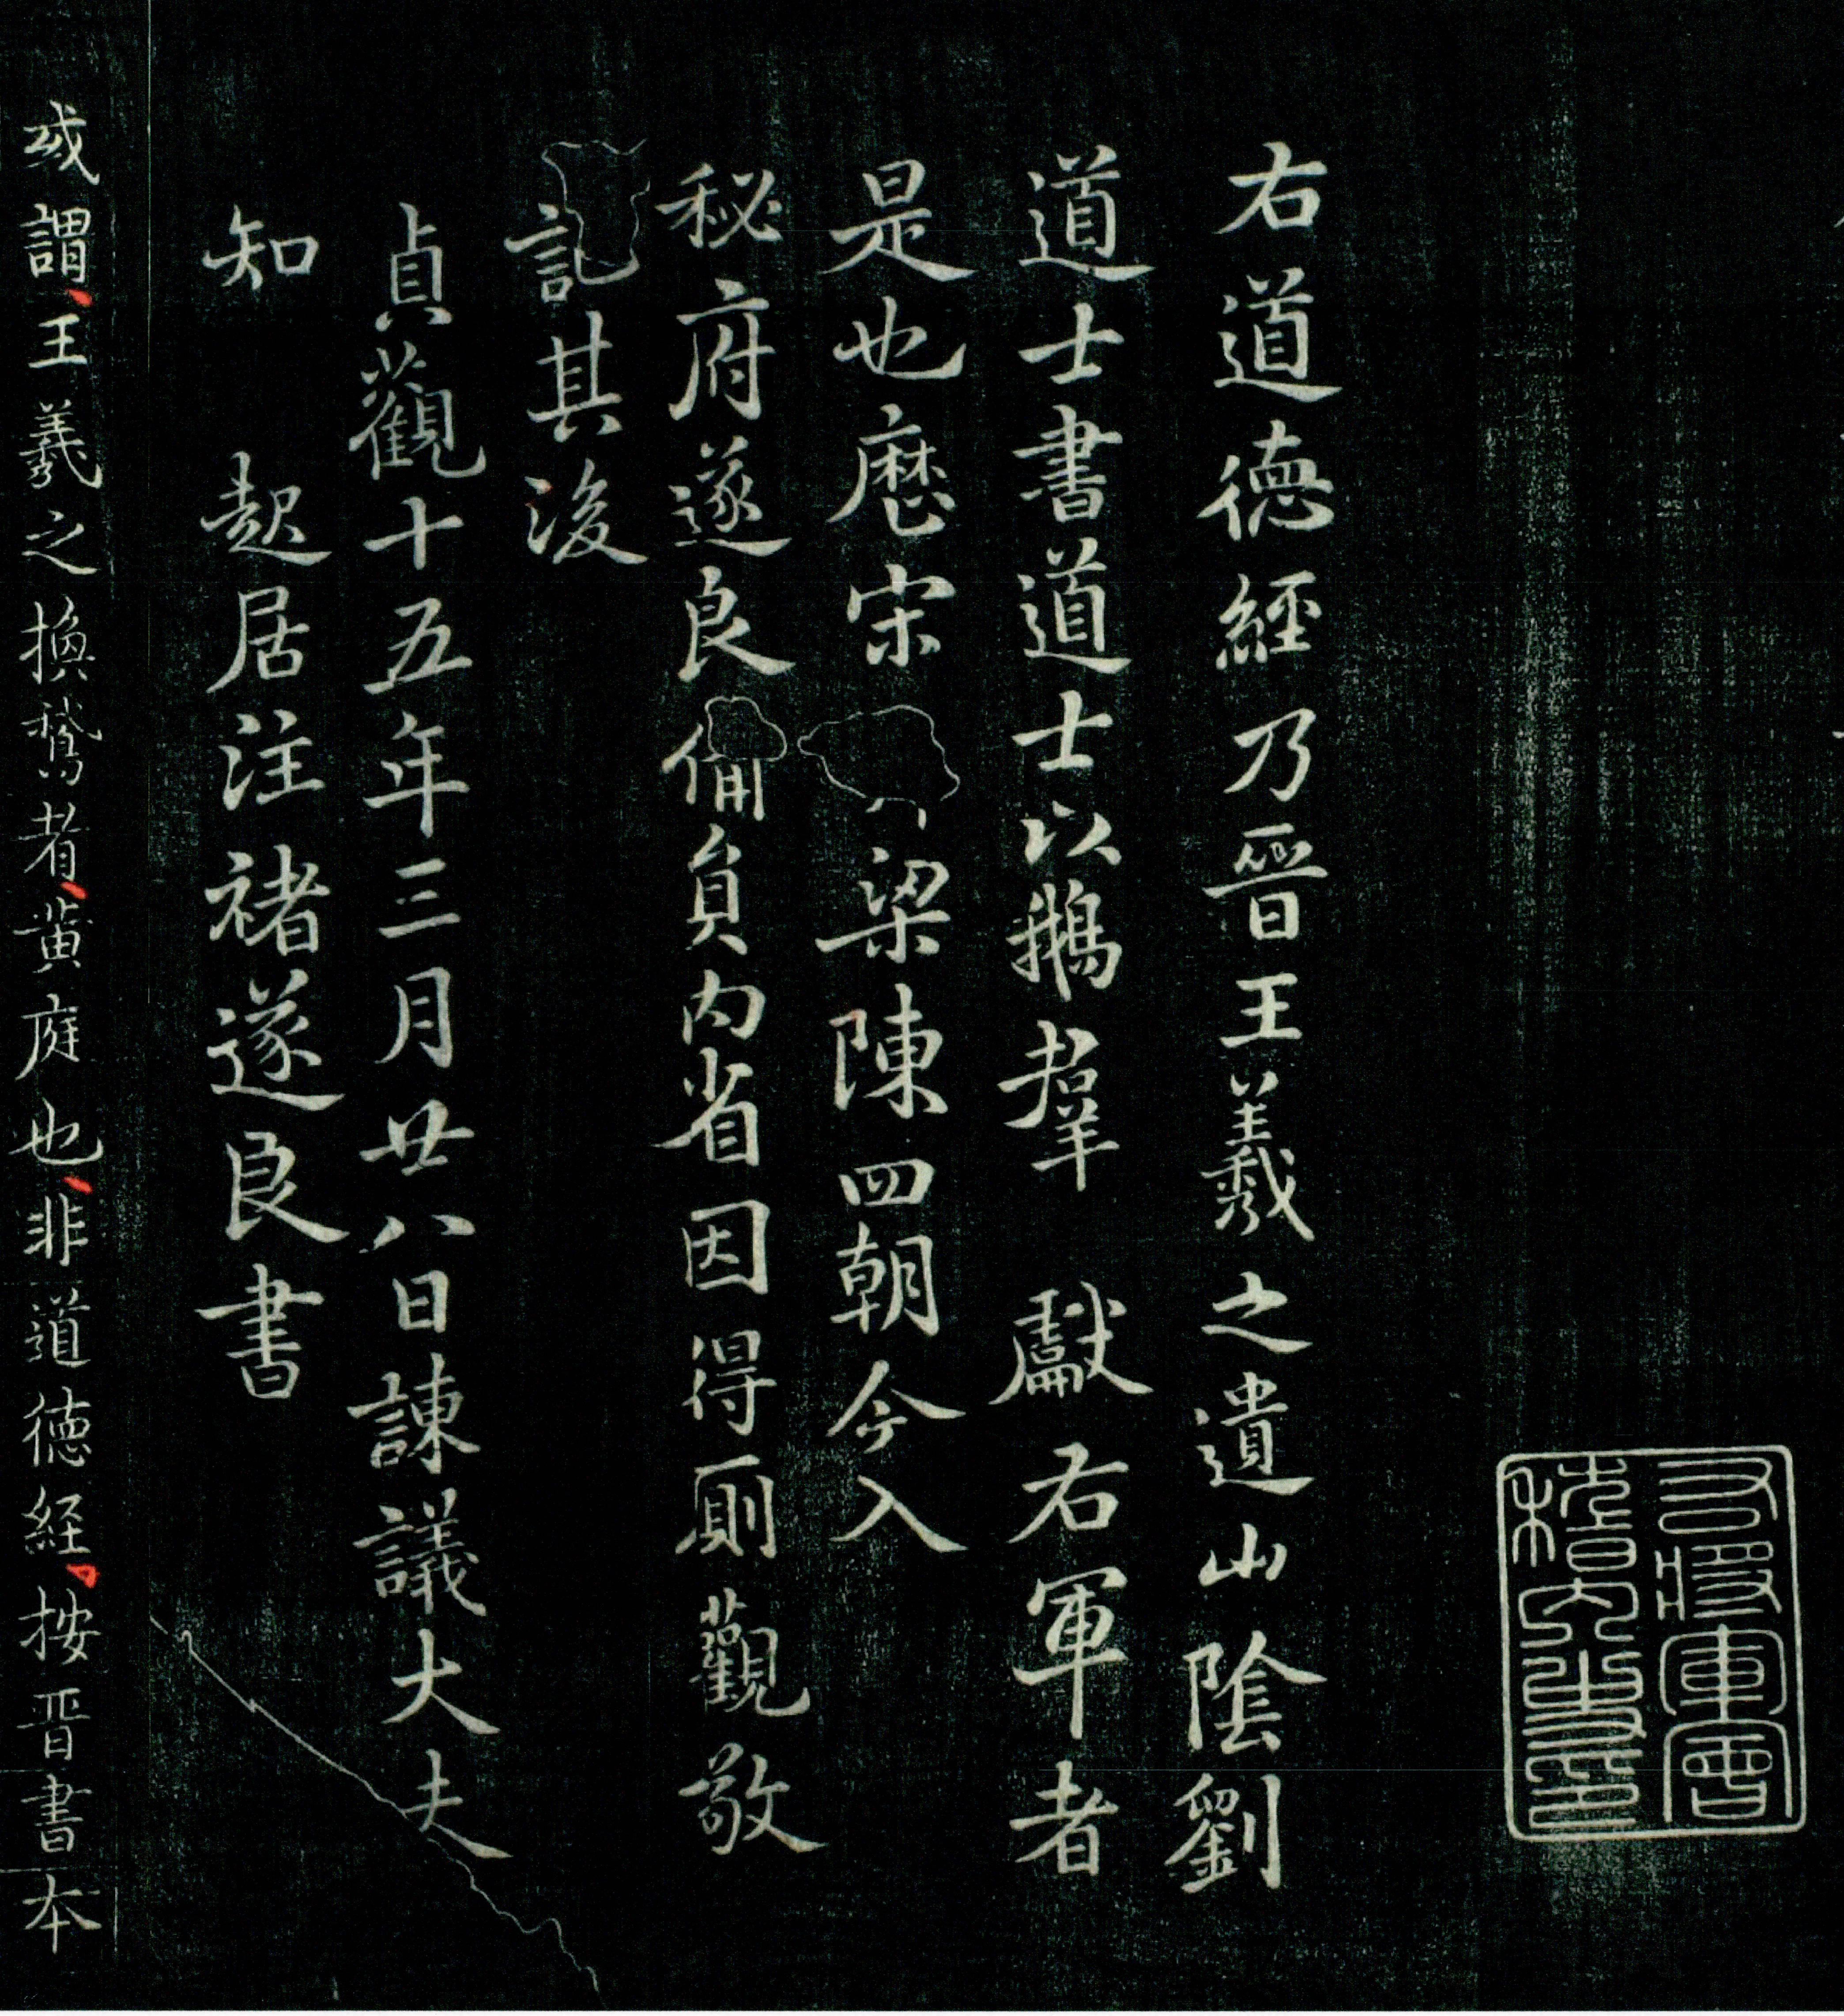 右將軍會
稽內史印
右道德經乃晉王羲之遺山陰劉
道士書道士以鵝羣獻右軍者
是也歷宋梁陳四朝今入
秘府遂良備員內省因得厠觀敬
記其後
貞觀十五年三月廿八日諫議大夫
知起居注褚遂良書
或謂、王羲之換鵞者、黃庭也、非道德経、按晋書本